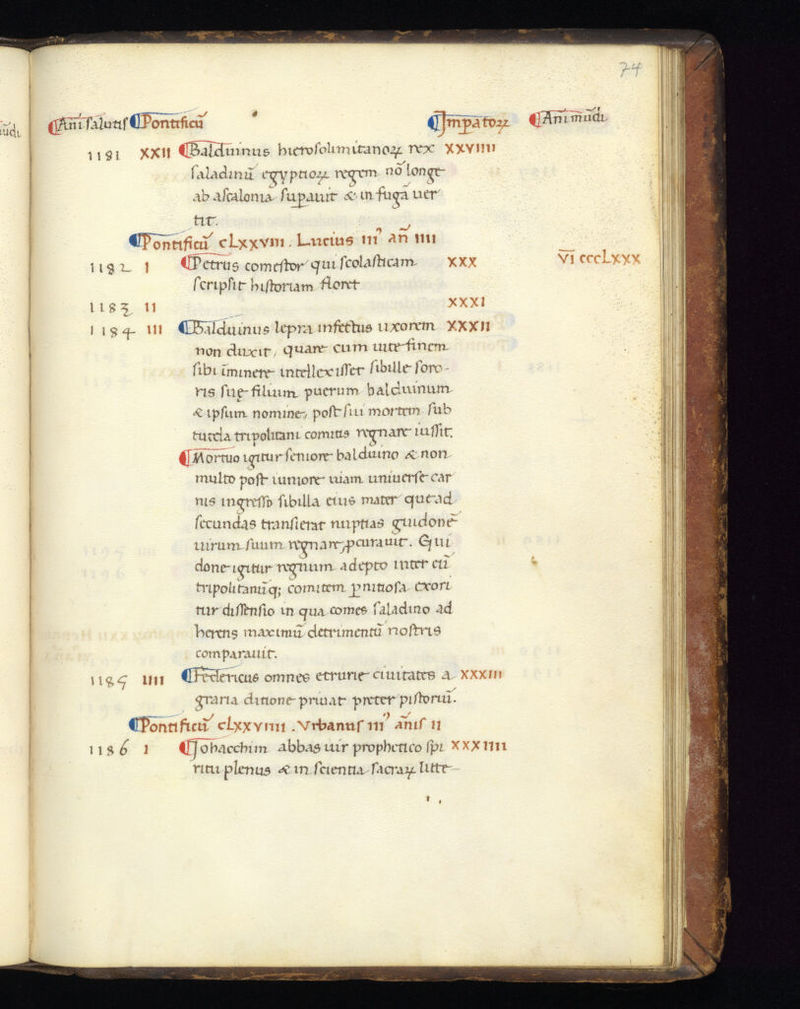 74
Ani salutis Pontificū Impatoꝝ Ani mūdi
1181 XXII Balduinus hierosolimitanoꝝ rex XXVIIII
saladinū egyptioꝝ regem nō longe
ab ascalonia supauit & in fugā uer
tit.
Pontificū CLXXVIII. Lucius III⁹ an̄ IIII
1182 I Petrus comestor qui scolasticam XXX V̄I CCCLXXX
scripsit historiam floret
1183 II XXXI
1184 III Balduinus lepra infectus uxorem XXXII
non duxit, quare cum uite finem
sibi īminere intellexisset sibille soro-
ris suę filium puerum balduinum
& ipsum nomine, post sui mortem sub
tutela tripolitani comitis regnare iussit.
Mortuo igitur seniore balduino & non
multo post iuniore uiam uniuerse car
nis ingresso sibilla eius mater que ad
secundas transierat nuptias guidonē
uirum suum regnare ꝓcurauit. Gui
done igitur regnum adepto inter eū
tripolitanūq; comitem ꝑnitiosa exori
tur dissensio in qua comes saladino ad
herens maximū detrimentū nostris
comparauit.
1185 IIII Federicus omnes etrurie ciuitates a XXXIII
graria ditione priuat preter pistoriū.
Pontificū CLXXVIIII. Vrbanus III⁹ ānis II
1186 I Johacchim abbas uir prophetico spi XXXIIII
ritu plenus & in scientia sacraꝝ litte